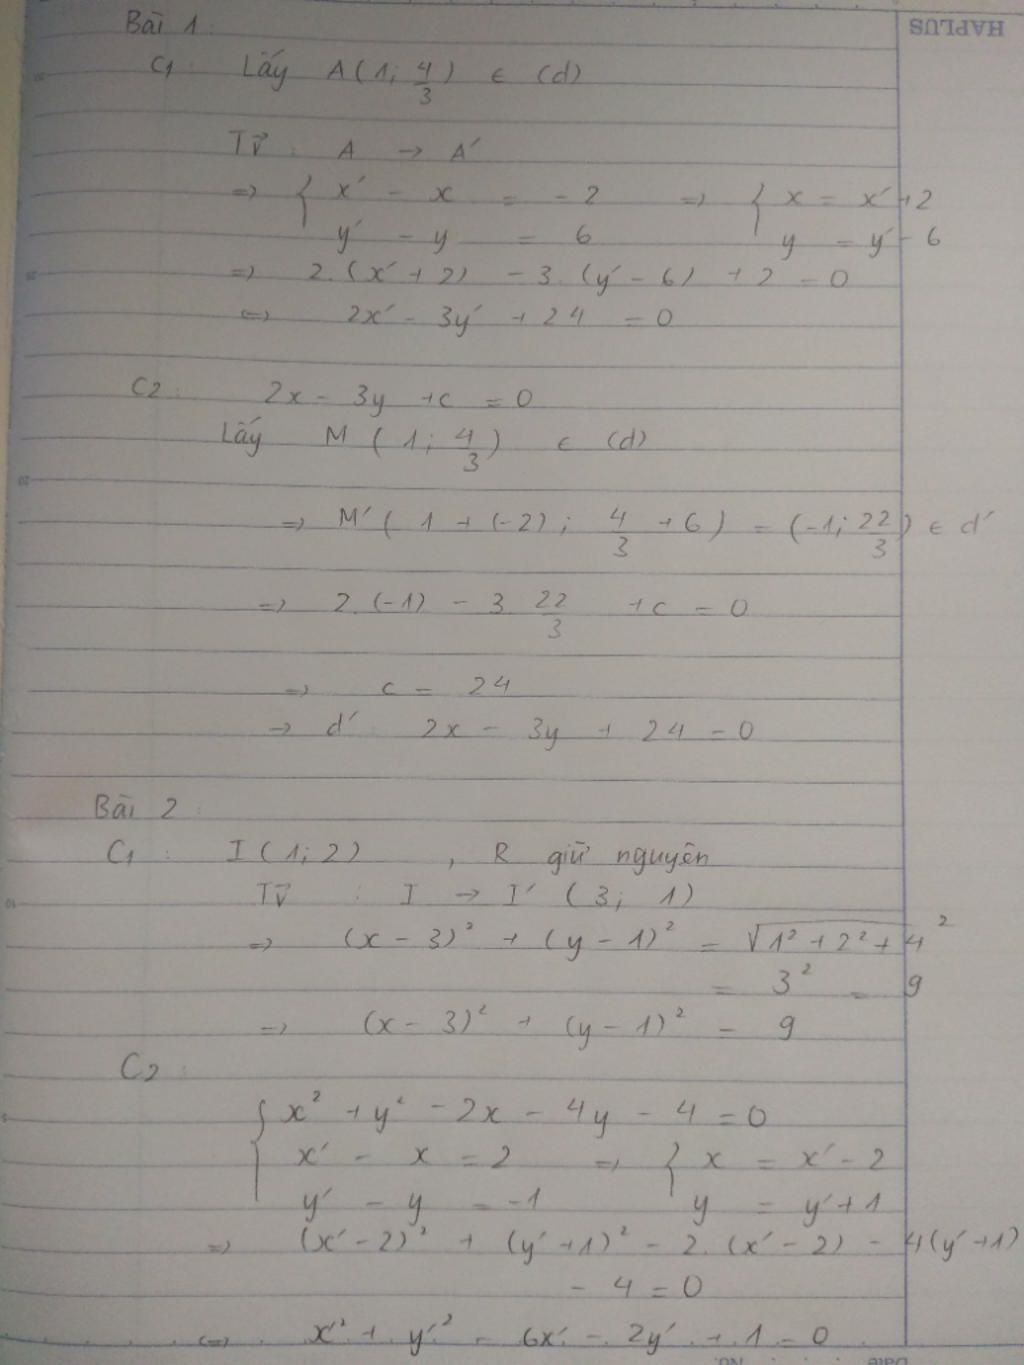 HAPLUS
Bài 1:
C1: Lấy A(1; 4/3) ∈ (d)
Tv⃗ : A → A'
=> { x' - x = -2 => { x = x' + 2
y' - y = 6 y = y' - 6
=> 2.(x' + 2) - 3.(y' - 6) + 2 = 0
<=> 2x' - 3y' + 24 = 0
C2: 2x - 3y + c = 0
Lấy M(1; 4/3) ∈ (d)
=> M'(1 + (-2); 4/3 + 6) = (-1; 22/3) ∈ d'
=> 2.(-1) - 3. 22/3 + c = 0
=> c = 24
→ d': 2x - 3y + 24 = 0
Bài 2:
C1: I(1; 2) , R giữ nguyên
Tv⃗ : I → I' (3; 1)
=> (x - 3)² + (y - 1)² = √(1² + 2² + 4)²
= 3² = 9
=> (x - 3)² + (y - 1)² = 9
C2:
{ x² + y² - 2x - 4y - 4 = 0
x' - x = 2 => { x = x' - 2
y' - y = -1 y = y' + 1
=> (x' - 2)² + (y' + 1)² - 2.(x' - 2) - 4(y' + 1)
- 4 = 0
<=> x'² + y'² - 6x' - 2y' + 1 = 0
Date No.